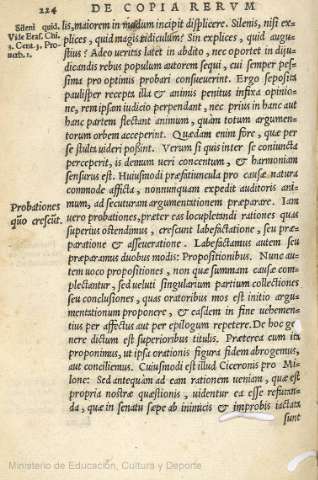 224 DE COPIA RERVM
Sileni quid.
Vide Eras. Chi.
3. Cent. 3. Pro-
uerb. 1.
lis, maiorem in modum incipit displicere. Silenis, nisi ex-
plices, quid magis ridiculum? Sin explices, quid augu-
stius? Adeo ueritas latet in abdito, nec oportet in diju-
dicandis rebus populum autorem sequi, cui semper pes-
sima pro optimis probari consueuerint. Ergo seposita
paulisper recepta illa & animis penitus infixa opinio-
ne, rem ipsam iudicio perpendant, nec prius in hanc aut
hanc partem flectant animum, quàm totum argumen-
torum orbem acceperint. Quædam enim fore, quæ per
se stulta uideri possint. Verum si quis inter se coniuncta
perceperit, is demum ueri concentum, & harmoniam
sensurus est. Huiusmodi præfatiuncula pro causæ natura
commode afficta, nonnunquam expedit auditoris ani-
mum, ad secuturam argumentationem præparare. Iam
Probationes
quo crescūt.
uero probationes, præter eas locupletandi rationes quas
superius ostendimus, crescunt labefactatione, seu præ-
paratione & asseueratione. Labefactamus autem seu
præparamus duobus modis: Propositionibus. Nunc au-
tem uoco propositiones, non quæ summam causæ com-
plectantur, sed ueluti singularium partium collectiones
seu conclusiones, quas oratoribus mos est initio argu-
mentationum proponere, & easdem in fine uehemen-
tius per affectus aut per epilogum repetere. De hoc ge
nere dictum est superioribus titulis. Præterea cum ita
proponimus, ut ipsa orationis figura fidem abrogemus,
aut conciliemus. Cuiusmodi est illud Ciceronis pro Mi-
lone: Sed antequàm ad eam rationem ueniam, quæ est
propria nostræ quæstionis, uidentur ea esse refutan-
da, quæ in senatu sæpe ab inimicis & improbis iactata
sunt
Ministerio de Educación, Cultura y Deporte